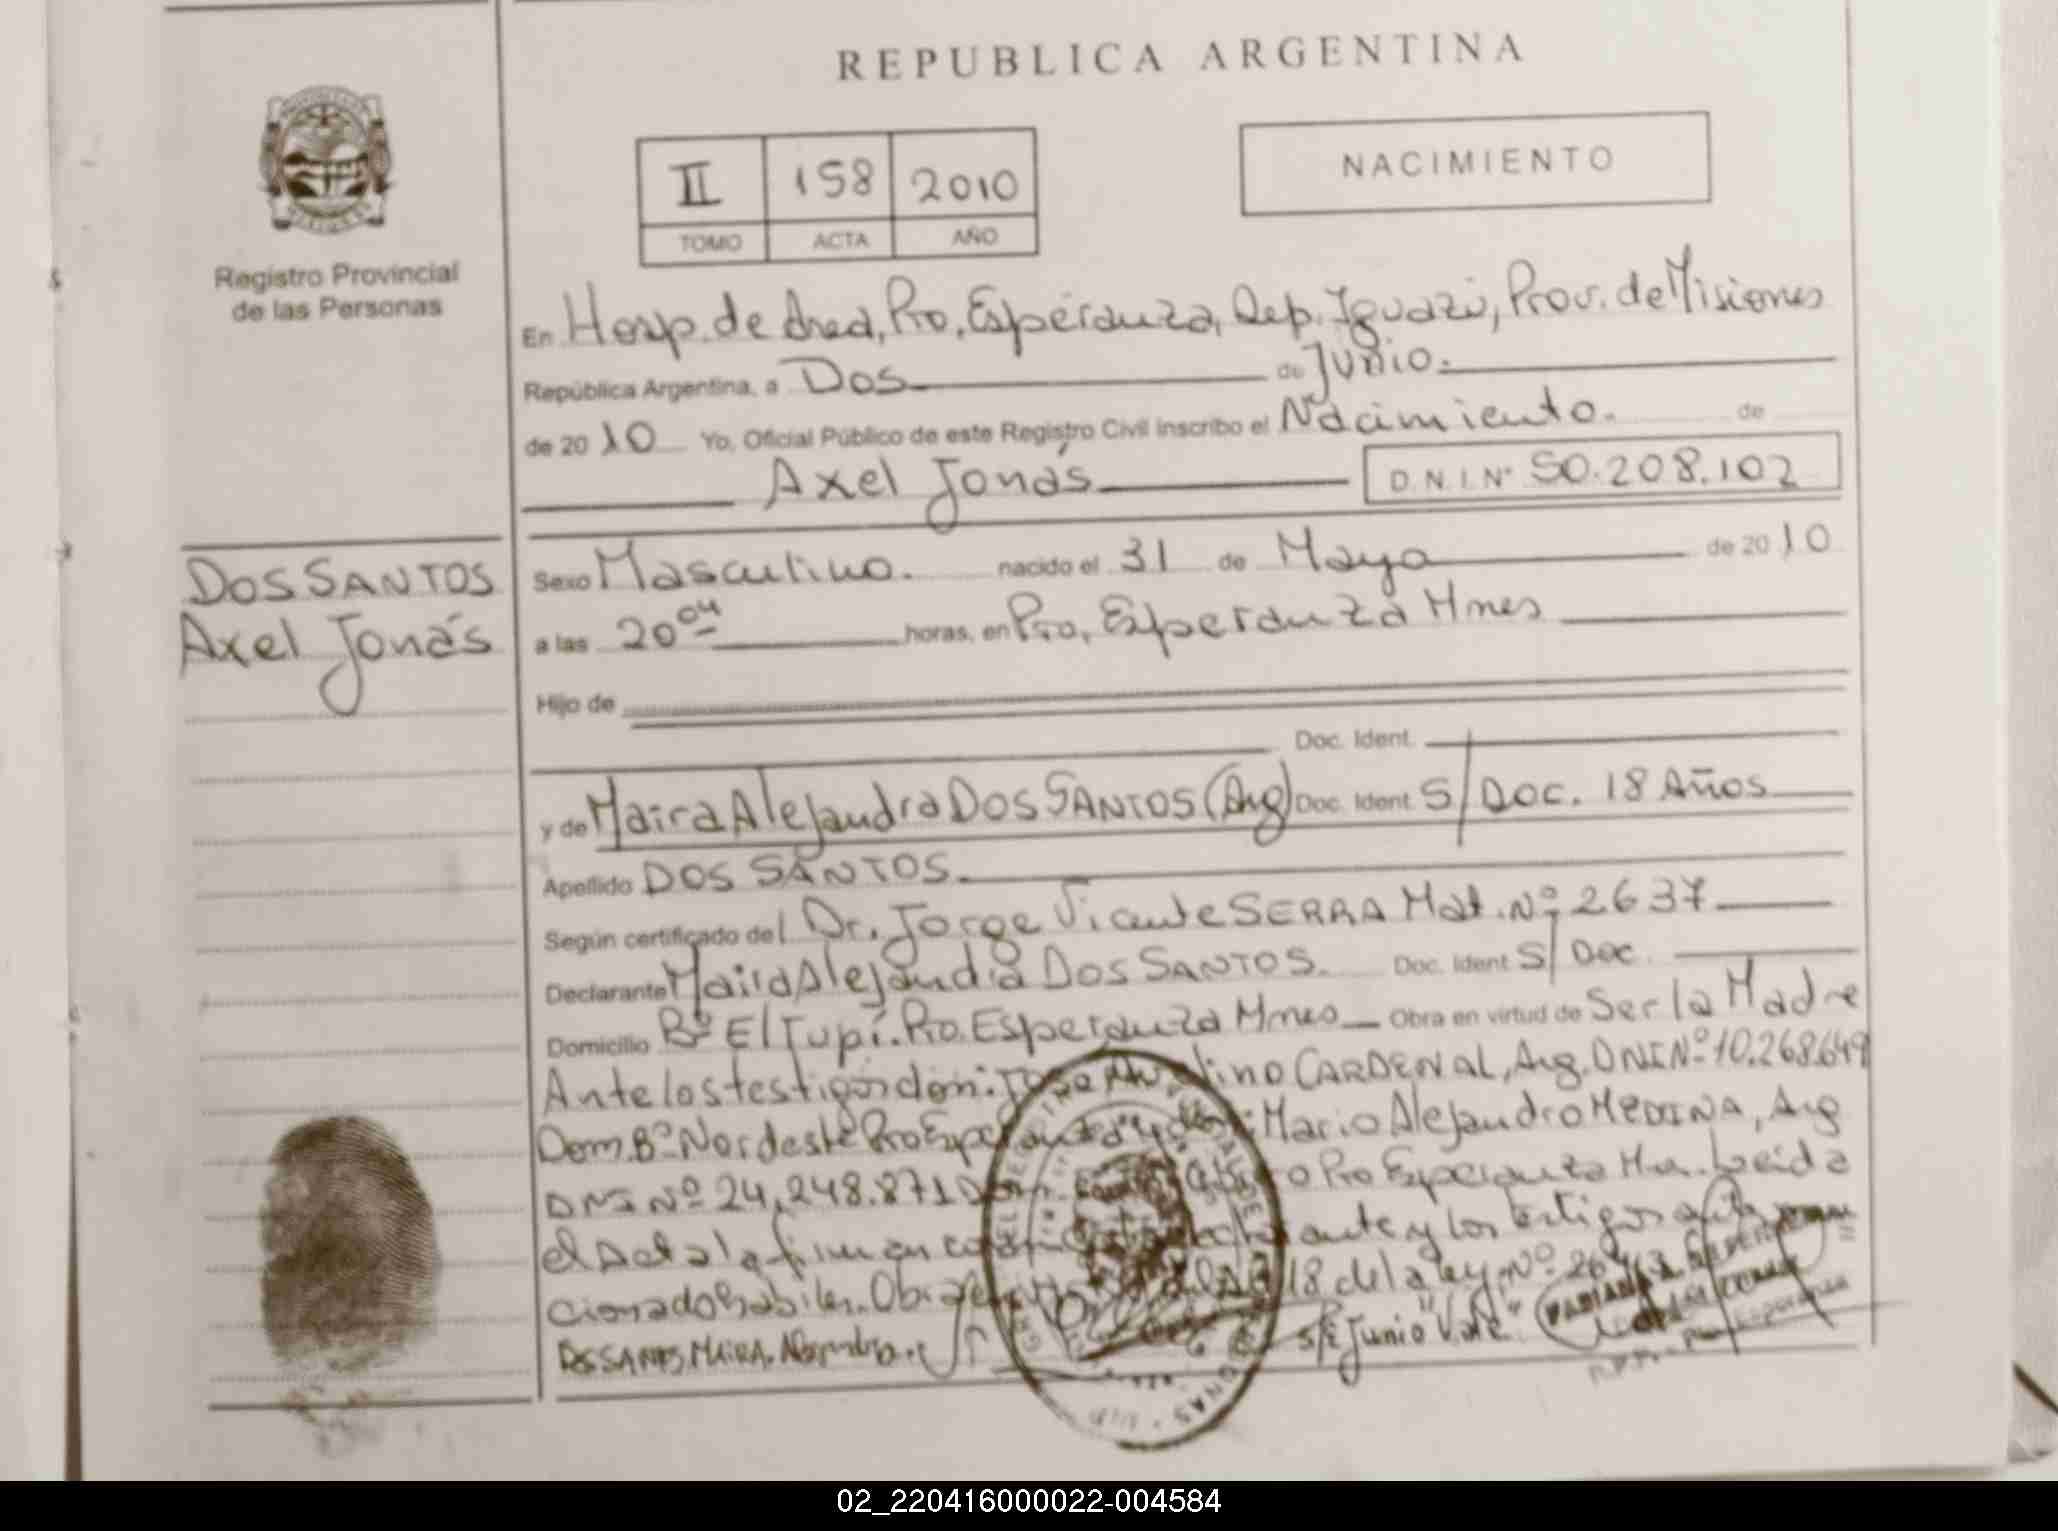 REPUBLICA ARGENTINA
II 158 2010
TOMO ACTA AÑO
NACIMIENTO
Registro Provincial
de las Personas
En Hosp. de Area, Pto. Esperanza, Dep. Iguazú, Prov. de Misiones
República Argentina, a Dos de Junio.
de 2010 Yo, Oficial Público de este Registro Civil inscribo el Nacimiento. de
Axel Jonás D.N.I.Nº 50.208.102
DOS SANTOS
Axel Jonás
Sexo Masculino. nacido el 31 de Mayo de 2010
a las 20 04 horas, en Pto. Esperanza Mnes
Hijo de
Doc. Ident.
y de Maira Alejandra DOS SANTOS (Arg) Doc. Ident. S/DOC. 18 Años
Apellido DOS SANTOS.
Según certificado del Dr. Jorge Vicente SERRA Mat. Nº 2637
Declarante Maira Alejandra DOS SANTOS. Doc. Ident S/Doc.
Domicilio Bº El Tupí. Pto. Esperanza Mnes Obra en virtud de Ser la Madre
Ante los testigos don: CARDENAL, Arg. DNI Nº 10.268.649
Dom. Bº Nordeste Pto Esperanza y don: Mario Alejandro MEDINA, Arg
DNI Nº 24.248.871 Pto Esperanza Mn. Leída
el Acta la firman ante y los testigos
cionado hábiles. 18 de la ley Nº
DOS SANTOS MAIRA. Alejandra. S/E Junio "Vale"
02_220416000022-004584